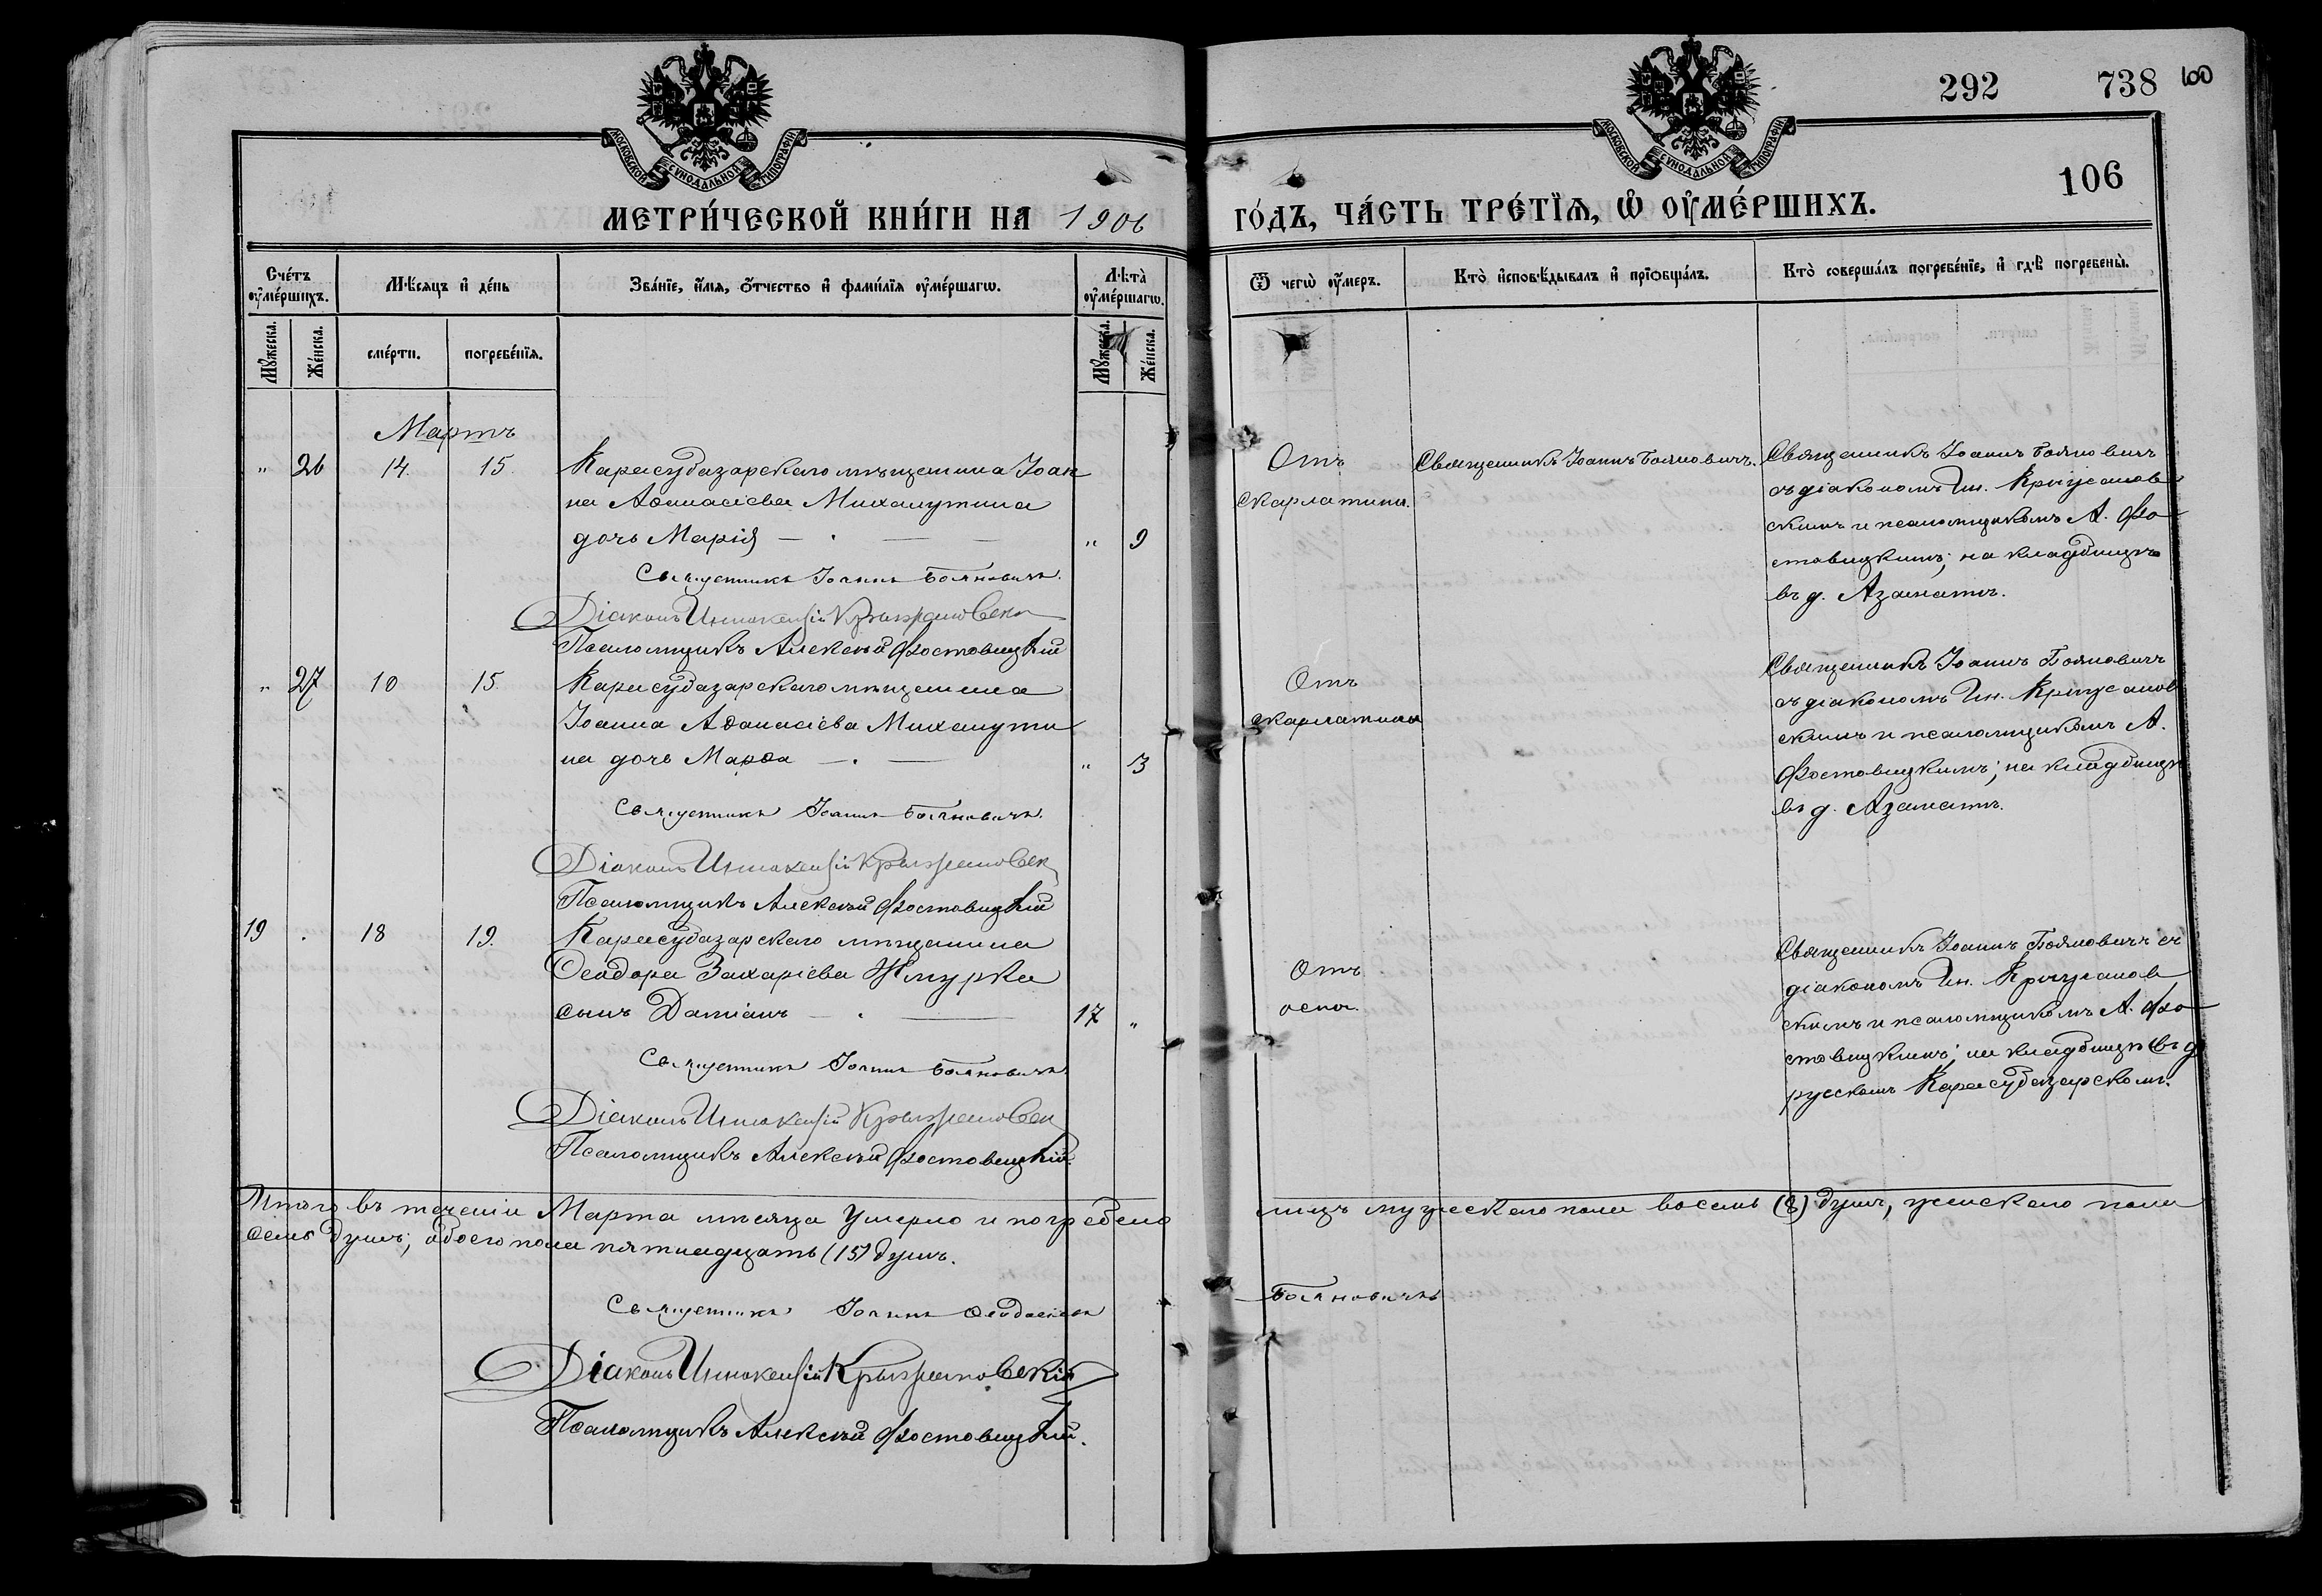 292 738 100
106
МОСКОВСКОЙ СѴНОДАЛЬНОЙ ТИПОГРАФІИ
МОСКОВСКОЙ СѴНОДАЛЬНОЙ ТИПОГРАФІИ
МЕТРИ́ЧЕСКОЙ КНИ́ГИ НА 1906
ГО́ДЪ, ЧА́СТЬ ТРЕ́ТЇѦ, Ѡ҆ ОУ҆МЕ́РШИХЪ.
Сче́тъ оу҆ме́ршихъ.
Мѣ́сяцъ и҆ де́нь
Зва́нїе, и҆́мѧ, о҆́тчество и҆ фами́лїѧ оу҆ме́ршагѡ.
Лѣта̀ оу҆ме́ршагѡ.
Ѿ чегѡ̀ оу҆́меръ.
Кто̀ и҆сповѣ́дывалъ и҆ прїѡбща́лъ.
Кто̀ соверша́лъ погребе́нїе, и҆ гдѣ̀ погребены̀.
Мꙋ́жеска.
Же́нска.
сме́рти.
погребе́нїѧ.
Мꙋ́жеска.
Же́нска.
Мартъ
" 26 14. 15. Карасубазарскаго мѣщанина Іоан
на Аѳанасіева Михалутина
дочь Марія " 9
Священникъ Іоаннъ Бояновичъ.
Діаконъ Иннокентій Крыжановск
Псаломщикъ Алексѣй Фостовицкій
Отъ
скарлатины.
Священникъ Іоаннъ Бояновичъ.
Священникъ Іоаннъ Бояновичъ
съ діакономъ Ин. Крыжанов
скимъ и псаломщикомъ А. Фо
стовицкимъ; на кладбищѣ
въ д. Азаматъ.
" 27 10 15. Карасубазарскаго мѣщанина
Іоанна Аѳанасіева Михалути
на дочь Марѳа " 3
Священникъ Іоаннъ Бояновичъ.
Діаконъ Иннокентій Крыжановск
Псаломщикъ Алексѣй Фостовицкій
Отъ
скарлатины
Священникъ Іоаннъ Бояновичъ
съ діакономъ Ин. Крыжанов
скимъ и псаломщикомъ А.
Фостовицкимъ; на кладбищѣ
въ д. Азаматъ.
19 . 18 19. Карасубазарскаго мѣщанина
Ѳеодора Захаріева Жмурка
сынъ Даміанъ 17 "
Священникъ Іоаннъ Бояновичъ
Діаконъ Иннокентій Крыжановск
Псаломщикъ Алексѣй Фостовицкій.
Отъ
оспы.
Священникъ Іоаннъ Бояновичъ съ
діакономъ Ин. Крыжанов
скимъ и псаломщикомъ А. Фо
стовицкимъ; на кладбищѣ
русскомъ Карасубазарскомъ.
Итого въ теченіи Марта мѣсяца умерло и погребено лицъ мужескаго пола восемь (8) душъ, женскаго пола
семь душъ; обоего пола пятнадцать (15) душъ.
Священникъ Іоаннъ Ѳеодосіевъ Бояновичъ
Діаконъ Иннокентій Крыжановскій
Псаломщикъ Алексѣй Фостовицкій.